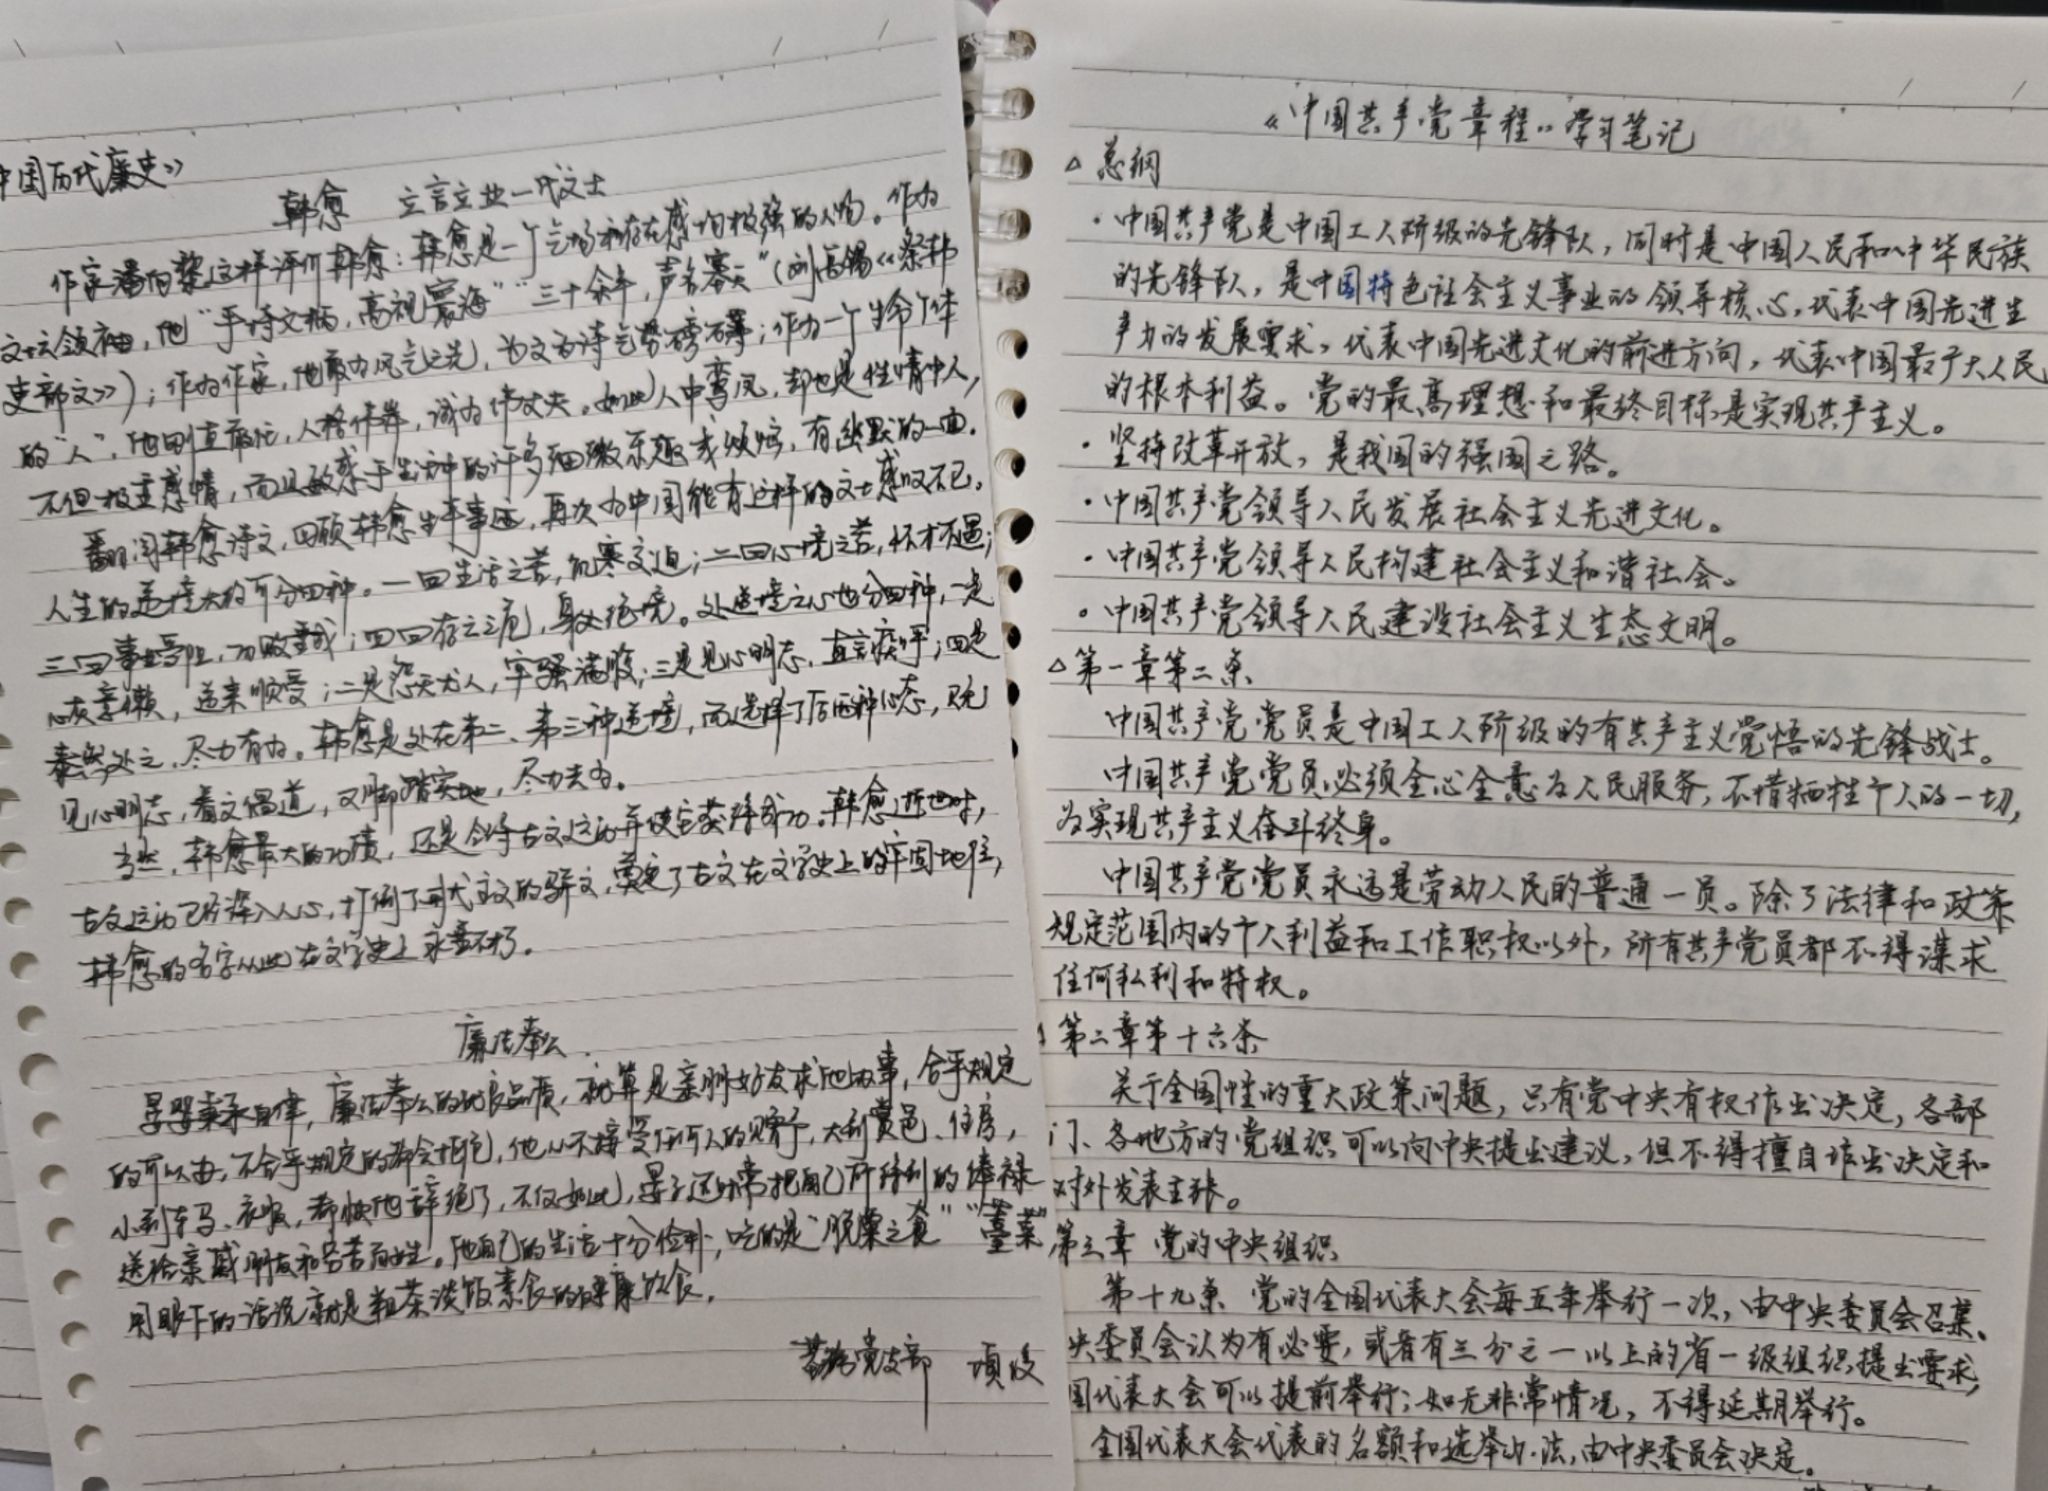 中国历代廉史》
韩愈 立言立业一代文士
作家潘向黎这样评价韩愈：韩愈是一个气场和存在感均极强的人物。作为
文坛领袖，他“手持文柄，高视寰海”“三十余年，声名塞天”（刘禹锡《祭韩
吏部文》）；作为作家，他敢为风气之先，为文为诗气势磅礴；作为一个生命个体
的“人”，他刚直敢忙，人格伟岸，诚为伟丈夫。如此人中鸾凤，却也是性情中人，
不但极重感情，而且敏感于生活中的许多细微乐趣或烦恼，有幽默的一面。
翻阅韩愈诗文，回顾韩愈生平事迹，再次为中国能有这样的文士感叹不已。
人生的逆境大约可分四种。一曰生活之苦，饥寒交迫；二曰心境之苦，怀才不遇；
三曰事业受阻，功败垂成；四曰存亡之危，身处绝境。处逆境之心也分四种，一是
心灰意懒，逆来顺受；二是怨天尤人，牢骚满腹；三是见心明志，直言疾呼；四是
泰然处之，尽力有为。韩愈是处在第二、第三种逆境，而选择了后两种心态，既
见心明志，着文倡道，又脚踏实地，尽力去为。
当然，韩愈最大的功绩，还是领导古文运动并使它获得成功。韩愈逝世时，
古文运动已经深入人心，打倒了形式主义的骈文，奠定了古文在文学史上的牢固地位，
韩愈的名字从此在文学史上永垂不朽。
廉洁奉公
晏婴秉承自律，廉洁奉公的优良品质，就算是亲朋好友求他办事，合乎规定
的可以办，不合乎规定的都会拒绝，他从不接受任何人的赠予，大到赏邑、住房，
小到车马、衣服，都被他辞绝了，不仅如此，晏子还时常把自己所得到的俸禄
送给亲戚朋友和劳苦百姓。他自己的生活十分俭朴，吃的是“脱粟之食”“薹菜”
用眼下的话说就是粗茶淡饭素食的健康饮食。
党支部 项
《中国共产党章程》学习笔记
△ 总纲
·中国共产党是中国工人阶级的先锋队，同时是中国人民和中华民族
的先锋队，是中国特色社会主义事业的领导核心，代表中国先进生
产力的发展要求，代表中国先进文化的前进方向，代表中国最广大人民
的根本利益。党的最高理想和最终目标是实现共产主义。
·坚持改革开放，是我国的强国之路。
·中国共产党领导人民发展社会主义先进文化。
·中国共产党领导人民构建社会主义和谐社会。
·中国共产党领导人民建设社会主义生态文明。
△第一章第二条
中国共产党党员是中国工人阶级的有共产主义党悟的先锋战士。
中国共产党党员必须全心全意为人民服务，不惜牺牲个人的一切，
为实现共产主义奋斗终身。
中国共产党党员永远是劳动人民的普通一员。除了法律和政策
规定范围内的个人利益和工作职权以外，所有共产党员都不得谋求
任何私利和特权。
△ 第二章第十六条
关于全国性的重大政策问题，只有党中央有权作出决定，各部
门、各地方的党组织可以向中央提出建议，但不得擅自作出决定和
对外发表主张。
第三章 党的中央组织
第十九条 党的全国代表大会每五年举行一次，由中央委员会召集。
央委员会认为有必要，或者有三分之一以上的省一级组织提出要求，
国代表大会可以提前举行；如无非常情况，不得延期举行。
全国代表大会代表的名额和选举办法，由中央委员会决定。